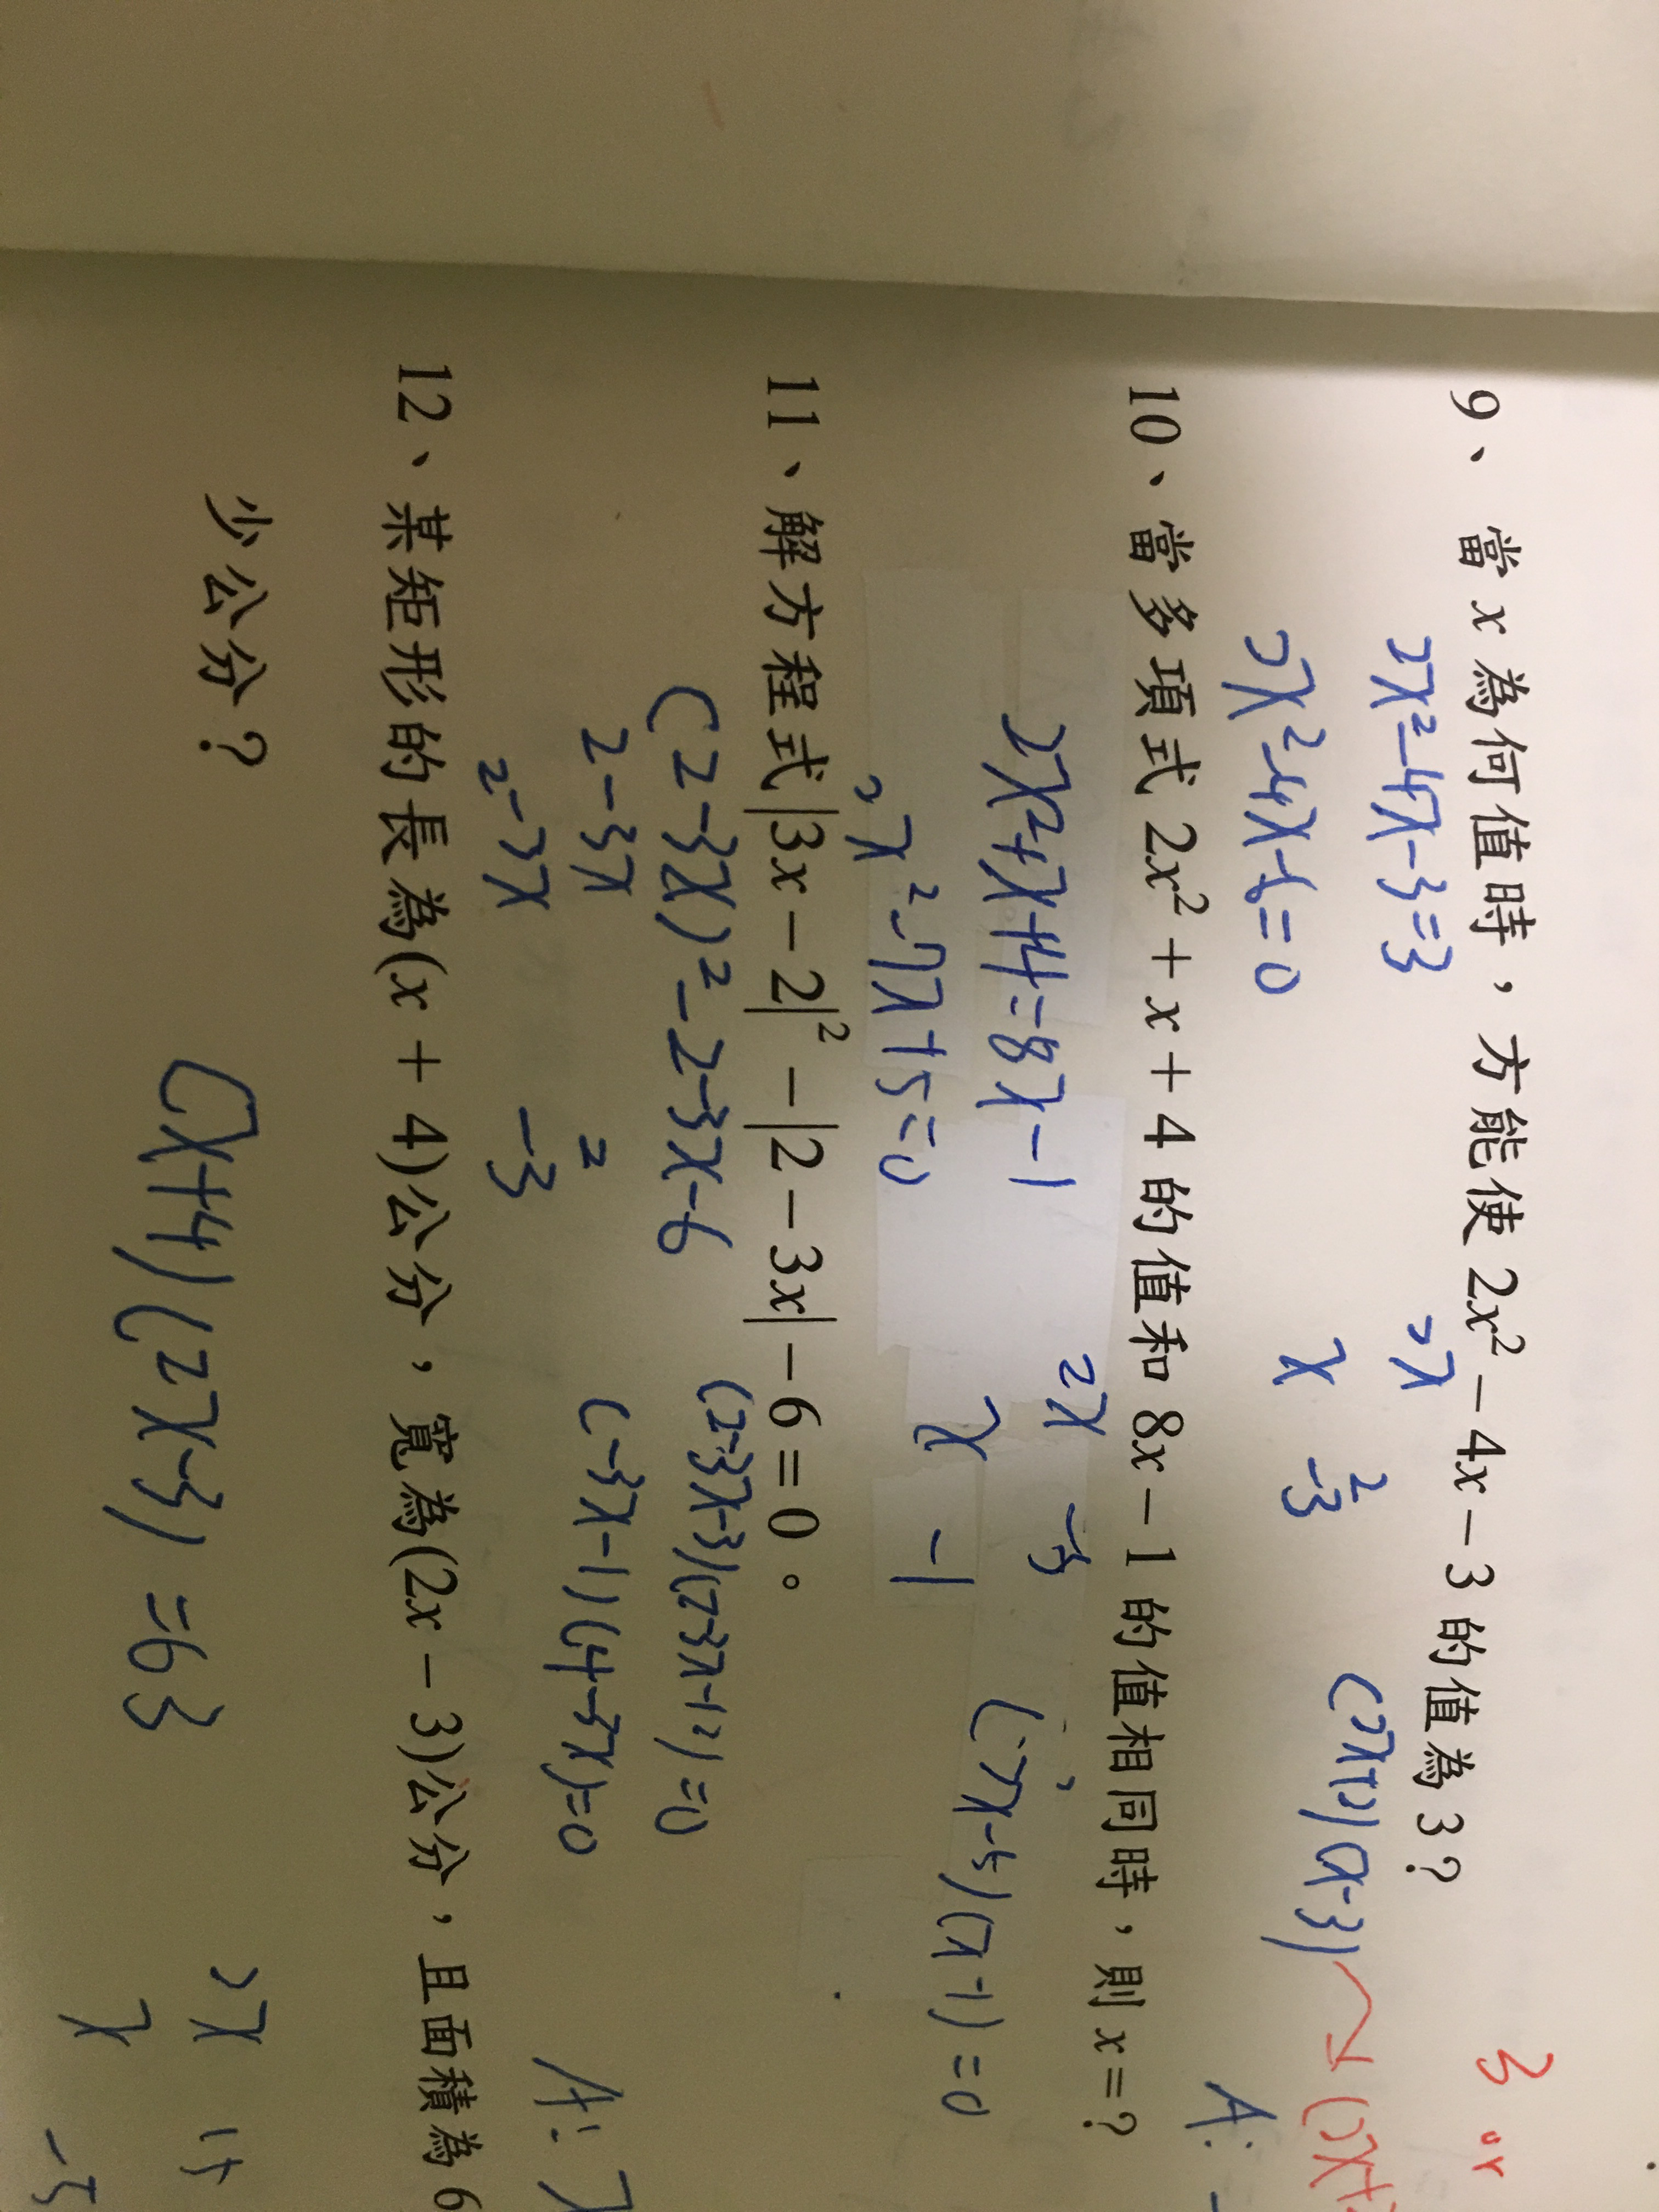 9、當 x 為何值時，方能使 2x² − 4x − 3 的值為 3？
3 or
2x²-4x-3=3
2x
(2x+2)(x-3)
2x²-4x-6=0
x
2
-3
A:
10、當多項式 2x² + x + 4 的值和 8x − 1 的值相同時，則 x = ?
2x²+x+4=8x-1
2x -5
(2x-5)(x-1)=0
2x²-7x+5=0
x -1
11、解方程式|3x − 2|² − |2 − 3x| − 6 = 0。
(2-3x)²-2-3x-6
(2-3x-3)(2-3x+2)=0
2-3x 2
(-3x-1)(4-3x)=0
A:
2-3x -3
12、某矩形的長為(x + 4)公分，寬為(2x − 3)公分，且面積為 6
少公分？
(x+4)(2x-3)=63
2x
x -5